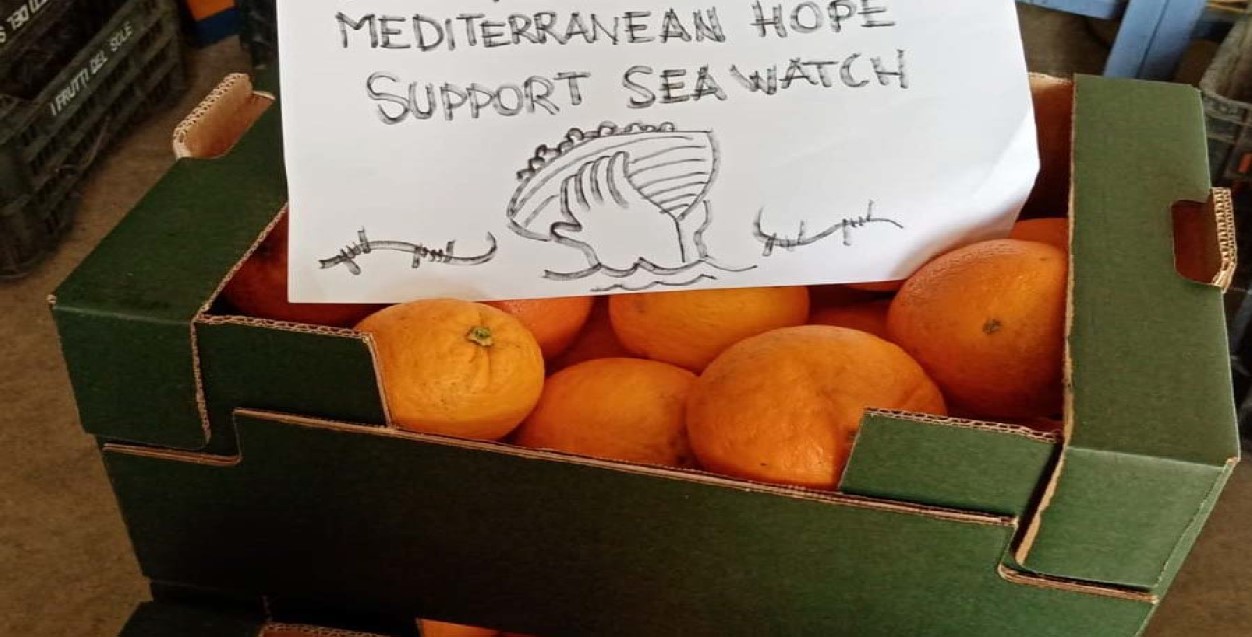 MEDITERRANEAN HOPE
SUPPORT SEA WATCH
I FRUTTI DEL SOLE